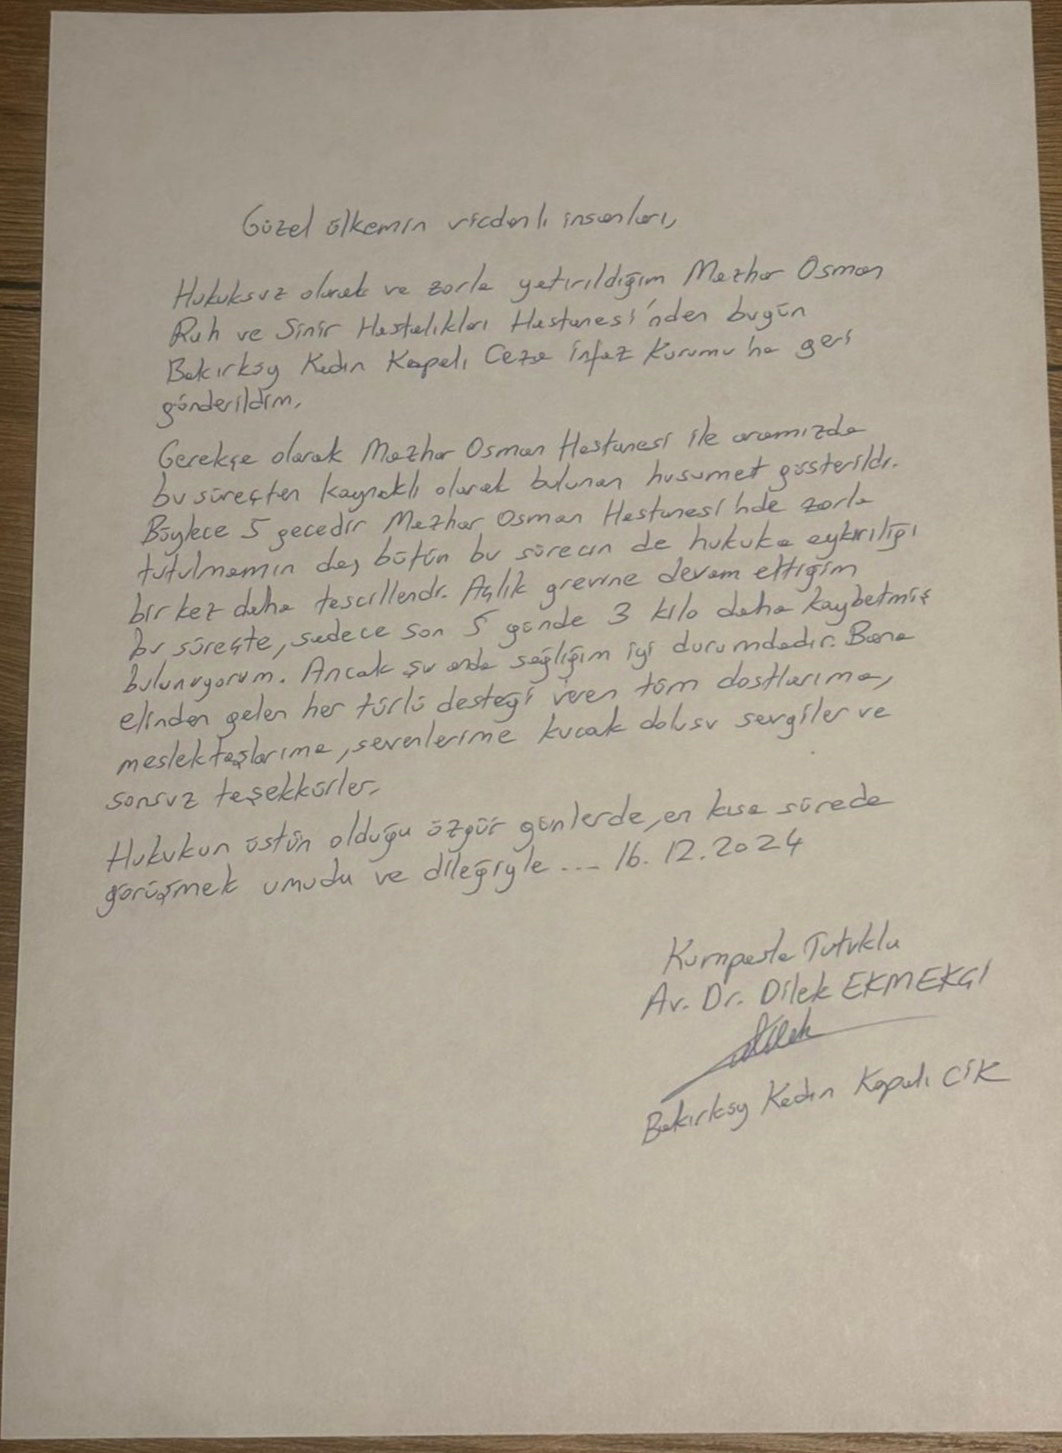 Güzel ülkemin vicdanlı insanları,
Hukuksuz olarak ve zorla yatırıldığım Mazhar Osman
Ruh ve Sinir Hastalıkları Hastanesi'nden bugün
Bakırköy Kadın Kapalı Ceza İnfaz Kurumu'na geri
gönderildim.
Gerekçe olarak Mazhar Osman Hastanesi ile aramızda
bu süreçten kaynaklı olarak bulunan husumet gösterildi.
Böylece 5 gecedir Mazhar Osman Hastanesi'nde zorla
tutulmamın da, bütün bu sürecin de hukuka aykırılığı
bir kez daha tescillendi. Açlık grevine devam ettiğim
bu süreçte, sadece son 5 günde 3 kilo daha kaybetmiş
bulunuyorum. Ancak şu anda sağlığım iyi durumdadır. Bana
elinden gelen her türlü desteği veren tüm dostlarıma,
meslektaşlarıma, sevenlerime kucak dolusu sevgiler ve
sonsuz teşekkürler.
Hukukun üstün olduğu özgür günlerde, en kısa sürede
görüşmek umudu ve dileğiyle .... 16.12.2024
Kumpasla Tutuklu
Av. Dr. Dilek EKMEKÇİ
Dilek
Bakırköy Kadın Kapalı CİK